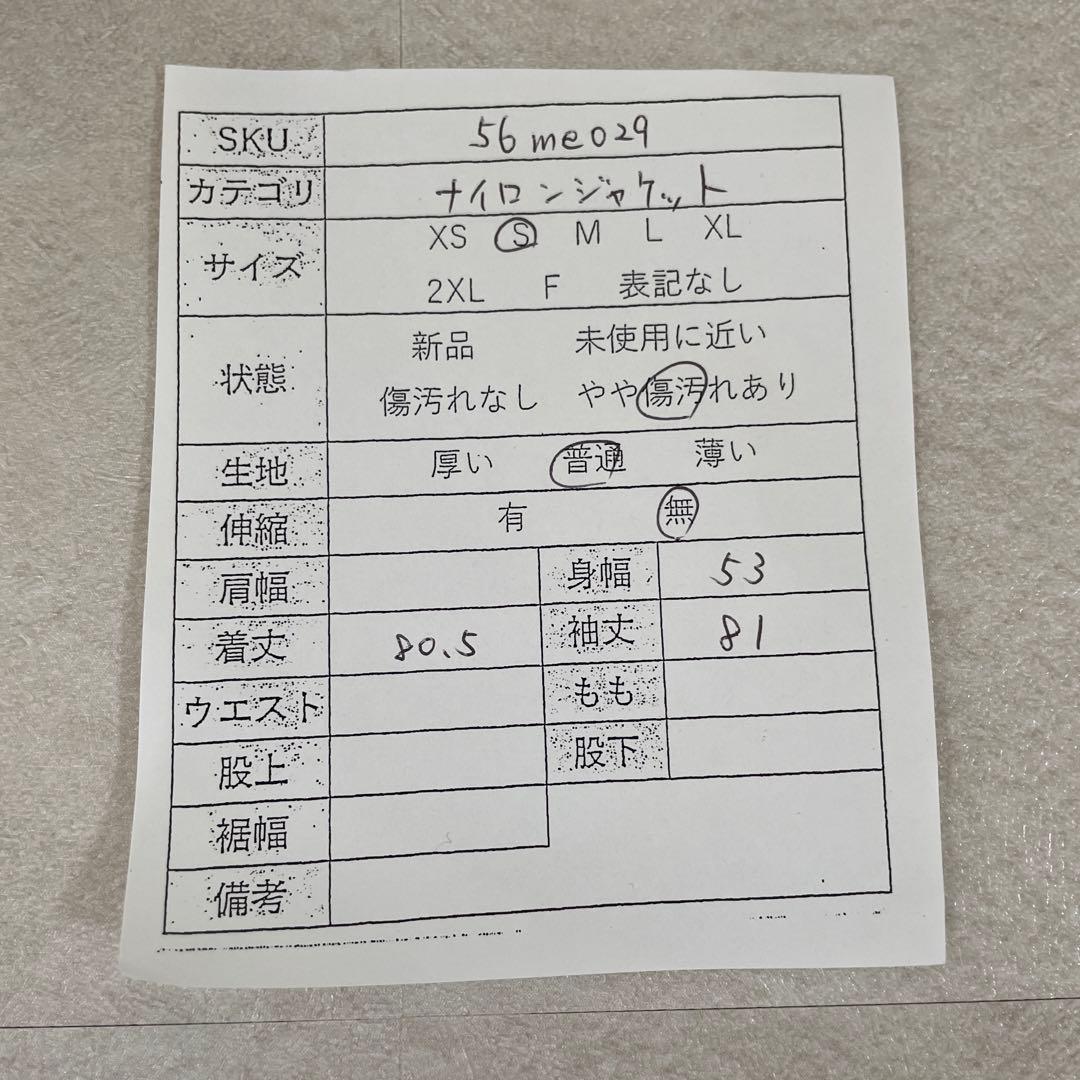 SKU 56me029
カテゴリ ナイロンジャケット
サイズ XS S M L XL
2XL F 表記なし
状態 新品 未使用に近い
傷汚れなし やや傷汚れあり
生地 厚い 普通 薄い
伸縮 有 無
肩幅 身幅 53
着丈 80.5 袖丈 81
ウエスト もも
股上 股下
裾幅
備考